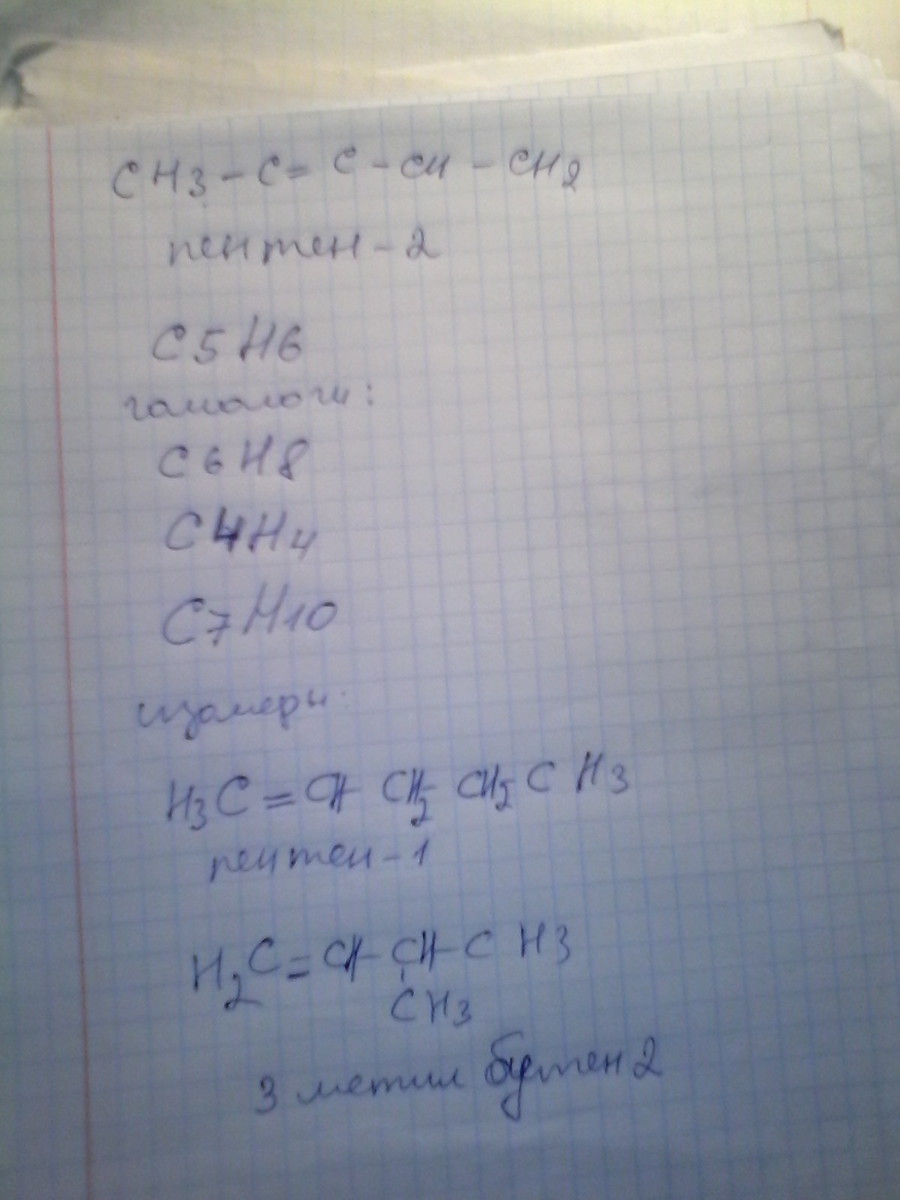 CH3 - C = C - CH - CH2
пентен - 2
C5H6
гомологи:
C6H8
C4H4
C7H10
изомеры.
H3C = CH CH2 CH2 C H3
пентен - 1
H2C = CH - CH - C H3
CH3
3 метил бутен 2